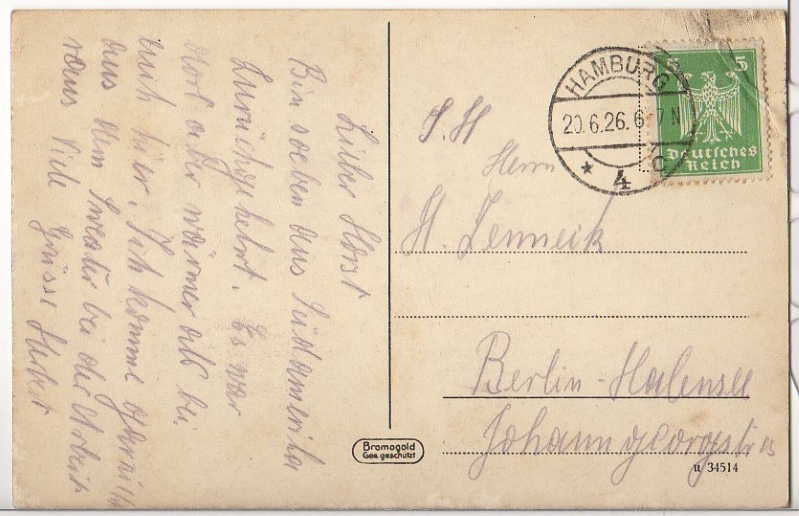 Lieber Horst
Bin soeben aus Südamerika
zurückgekehrt. Es war
dort aber wärmer als bei
euch hier. Ich komme
aus dem Sweater bei der Arbeit
raus Viele Grüsse Hubert
HAMBURG
20.6.26.6-7N
* 4 C
5 5
Deutsches
Reich
S. H
Herrn
H. Jenneck
Berlin-Halensee
Johann georgstr
Bromogold
Ges. geschützt
u 34514